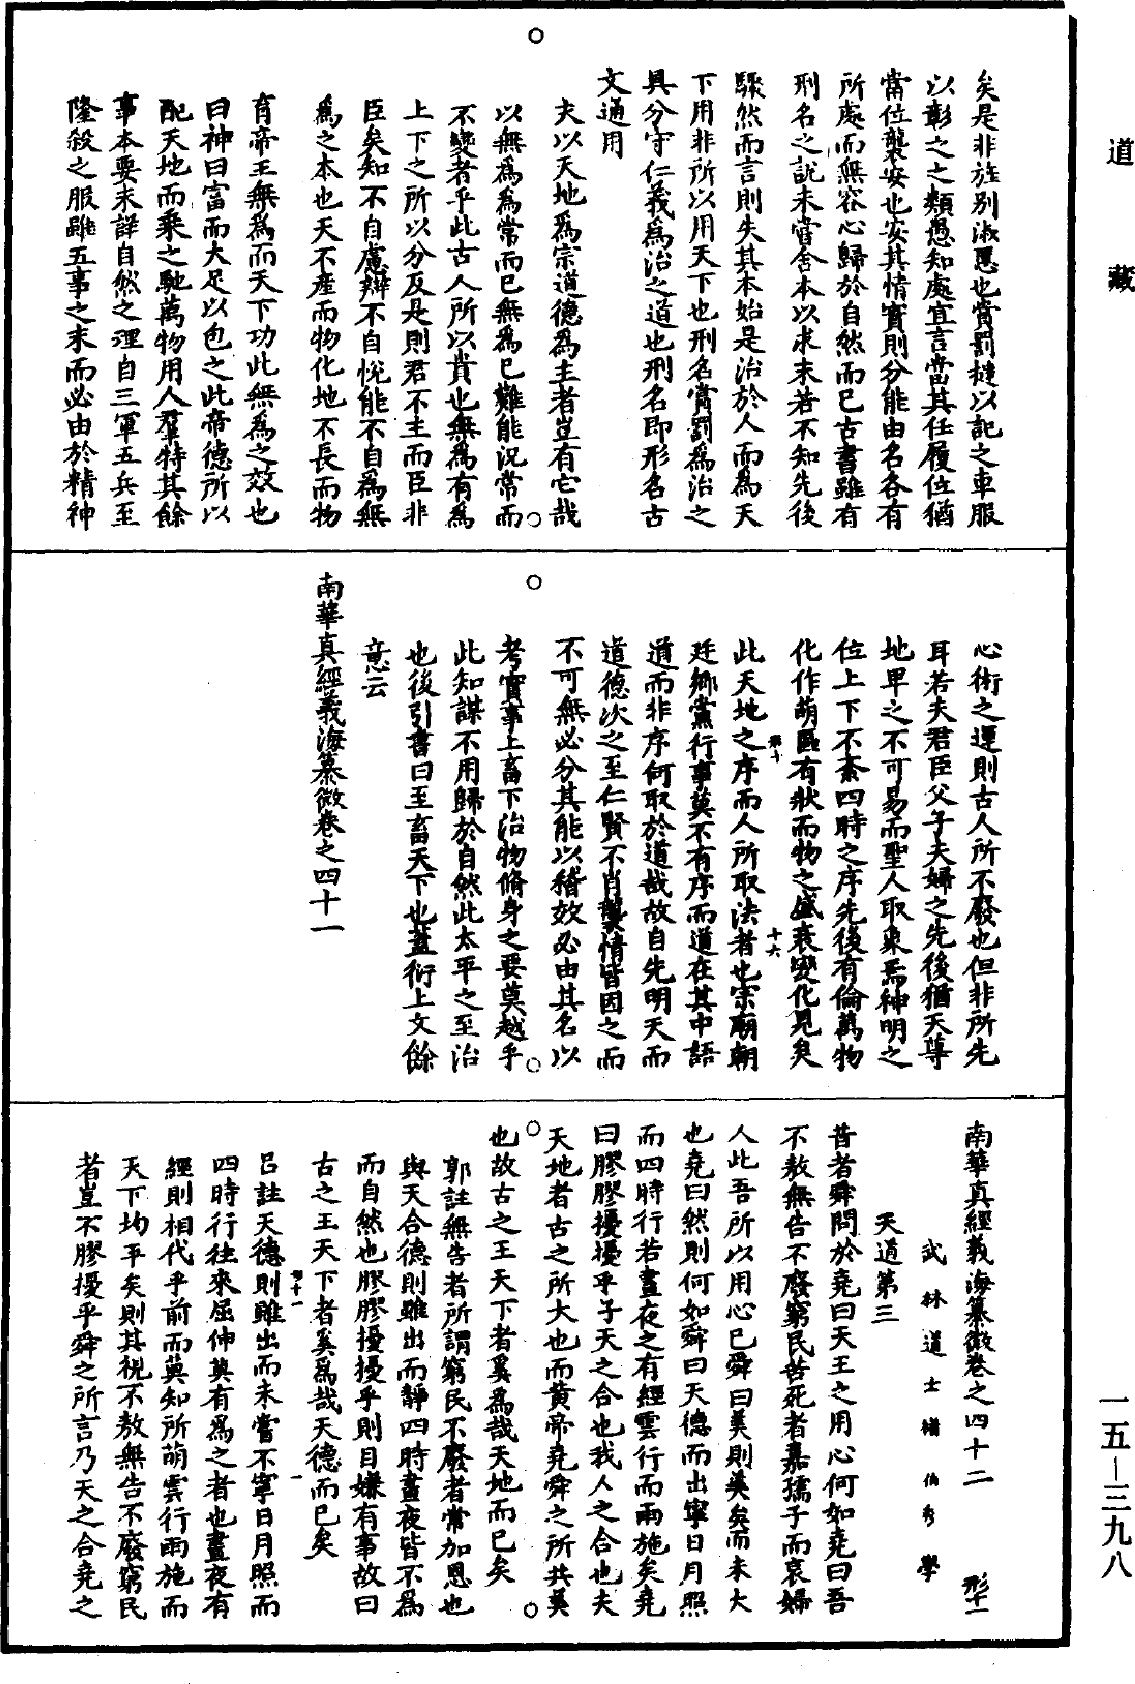 道藏
矣是非旌别淑慝也賞罰撻以記之車服
以彰之之類愚知處宜言當其任履位猶
當位襲安也安其情實則分能由名各有
所處而無容心歸於自然而已古書雖有
刑名之說未嘗舍本以求末若不知先後
驟然而言則失其本始是治於人而為天
下用非所以用天下也刑名賞罰為治之
具分守仁義為治之道也刑名即形名古
文通用
夫以天地為宗道德為主者豈有它哉
以無為為常而已無為已難能況常而
不變者乎此古人所以貴也無為有為
上下之所以分反是則君不主而臣非
臣矣知不自慮辯不自悅能不自為無
為之本也天不產而物化地不長而物
育帝王無為而天下功此無為之效也
曰神曰富而大足以包之此帝德所以
配天地而乘之馳萬物用人羣特其餘
事本要末詳自然之理自三軍五兵至
隆殺之服雖五事之末而必由於精神
心術之運則古人所不廢也但非所先
耳若夫君臣父子夫婦之先後猶天尊
地卑之不可易而聖人取象焉神明之
位上下不紊四時之序先後有倫萬物
化作萌區有狀而物之盛衰變化見矣
此天地之序而人所取法者也宗廟朝
廷鄉黨行事莫不有序而道在其中語
道而非序何取於道哉故自先明天而
道德次之至仁賢不肖襲情皆因之而
不可無必分其能以稽效必由其名以
考實事上畜下治物脩身之要莫越乎
此知謀不用歸於自然此太平之至治
也後引書曰至畜天下也蓋衍上文餘
意云
南華真經義海纂微卷之四十一
南華真經義海纂微卷之四十二 形十一
武林道士褚伯秀學
天道第三
昔者舜問於堯曰天王之用心何如堯曰吾
不敖無告不廢窮民苦死者嘉孺子而哀婦
人此吾所以用心已舜曰美則美矣而未大
也堯曰然則何如舜曰天德而出寧日月照
而四時行若晝夜之有經雲行而雨施矣堯
曰膠膠擾擾乎子天之合也我人之合也夫
天地者古之所大也而黄帝堯舜之所共美
也故古之王天下者奚為哉天地而已矣
郭註無告者所謂窮民不廢者常加恩也
與天合德則雖出而靜四時晝夜皆不為
而自然也膠膠擾擾乎則自嫌有事故曰
古之王天下者奚為哉天德而已矣
呂註天德則雖出而未嘗不寧日月照而
四時行往來屈伸莫有為之者也晝夜有
經則相代乎前而莫知所萌雲行雨施而
天下均平矣則其視不敖無告不廢窮民
者豈不膠擾乎舜之所言乃天之合堯之
一五—三九八